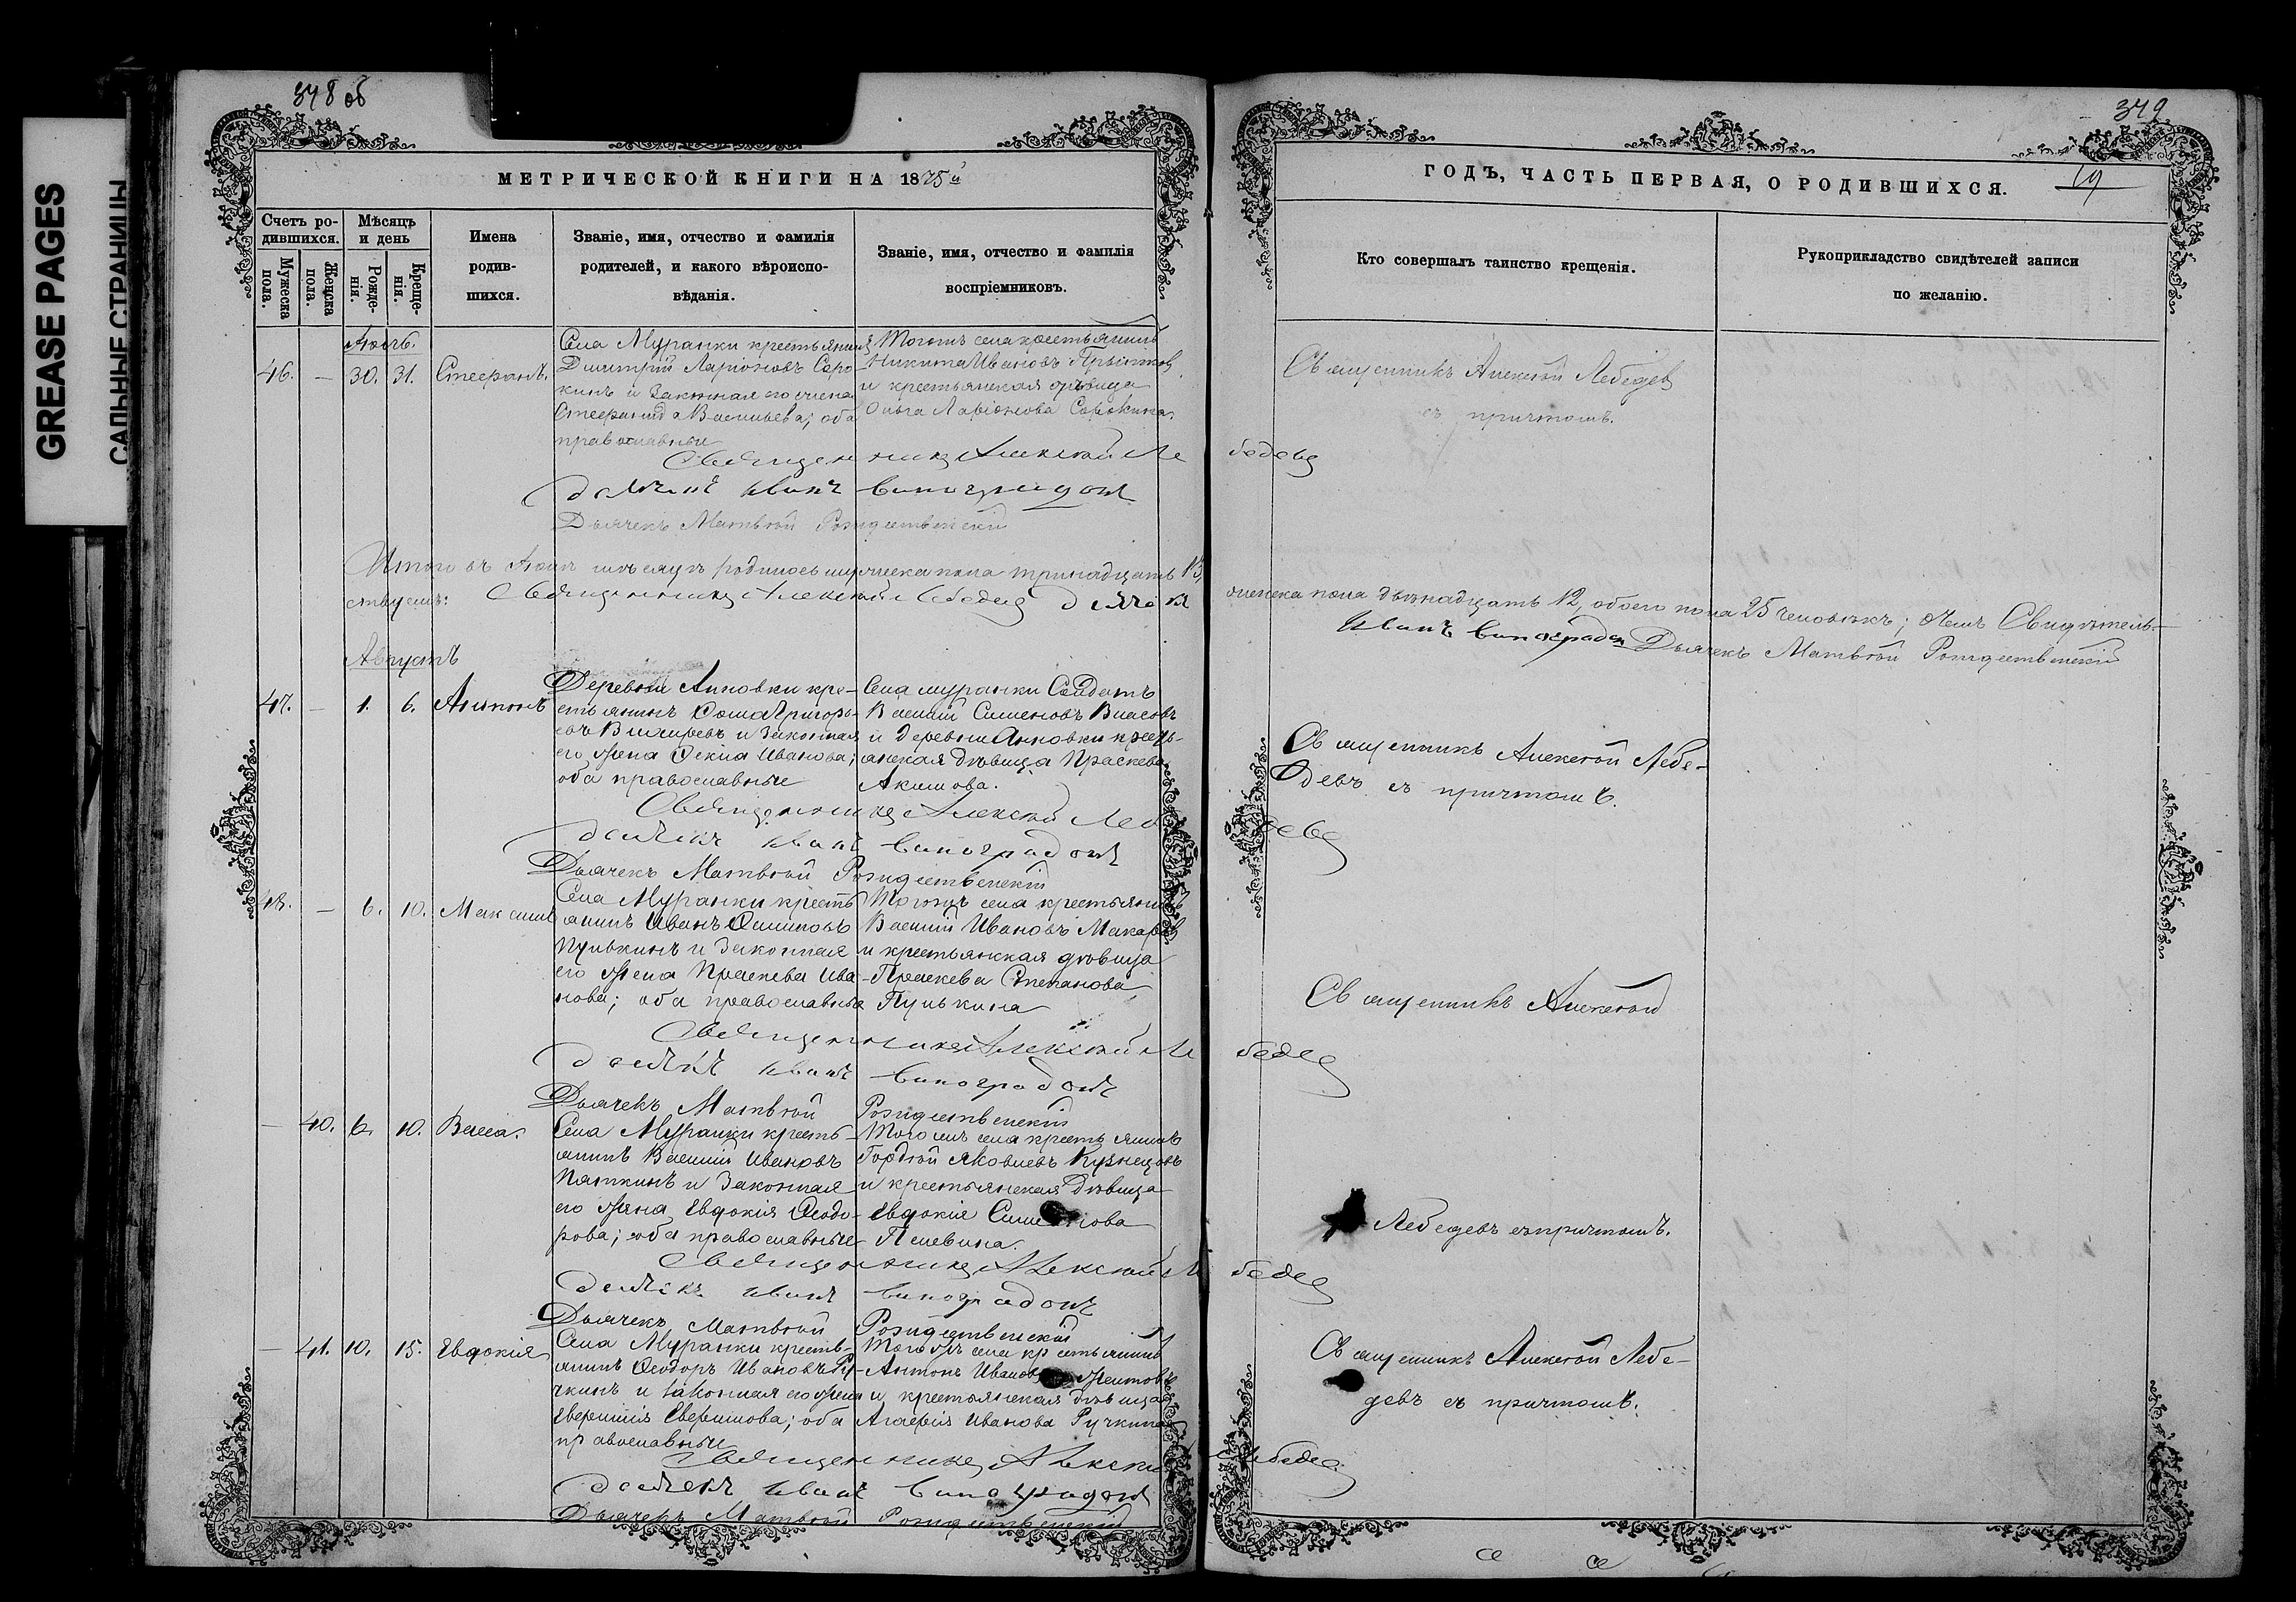 GREASE PAGES
САЛЬНЫЕ СТРАНИЦЫ
378 об
МЕТРИЧЕСКОЙ КНИГИ НА 1875й
Счетъ ро-
дившихся.
Мужеска пола.
Женска пола.
Мѣсяцъ
и день
Рожде-
нія.
Креще-
нія.
Имена
родив-
шихся.
Званіе, имя, отчество и фамилія
родителей, и какого вѣроиспо-
вѣданія.
Званіе, имя, отчество и фамилія
воспріемниковъ.
46. — 30. 31.
Села Муранки крестьянинъ
Димитрій Ларіоновъ Соро-
кинъ и законная его жена
Васильева; оба
православные
Тогожъ села крестьянинъ
Никита Ивановъ
и крестьянская дѣвица
Ольга Ларіонова Сорокина.
Священникъ Алексѣй Лебедевъ
Иванъ Виноградовъ
Дьячекъ Матвѣй Рождественскій
Итого въ мѣсяцѣ родилось мужеска пола тринадцать 13,
женска пола двѣнадцать 12, обоего пола 25 человѣкъ; о чемъ Свидѣтель-
ствуемъ: Священникъ Алексѣй Лебедевъ
Иванъ Виноградовъ Дьячекъ Матвѣй Рождественскій
Августъ
47. — 1. 6.
Деревни кре-
стьянинъ Ѳома Григорь-
евъ и законная
его жена Ѳекла Иванова;
оба православные
Села Муранки Солдатъ
Василій Симеоновъ Власовъ
и деревни кресть-
янская дѣвица Праскева
Акимова.
Священникъ Алексѣй Лебедевъ
Иванъ Виноградовъ
Дьячекъ Матвѣй Рождественскій
48. — 6. 10. Максимъ
Села Муранки кресть-
янинъ Иванъ
Пулькинъ и законная
его жена Праскева Ива-
нова; оба православные
Тогожъ села крестьянинъ
Василій Ивановъ Макаровъ
и крестьянская дѣвица
Праскева Степанова
Пулькина
Священникъ Алексѣй Лебедевъ
Иванъ Виноградовъ
Дьячекъ Матвѣй Рождественскій
— 40. 6. 10. Васса.
Села Муранки кресть-
янинъ Василій Ивановъ
Пяткинъ и законная
его жена Евдокія Ѳеодо-
рова; оба православные
Тогожъ села крестьянинъ
Гордѣй Яковлевъ Кузнецовъ
и крестьянская дѣвица
Евдокія Симеонова
Священникъ Алексѣй Лебедевъ
Иванъ Виноградовъ
Дьячекъ Матвѣй Рождественскій
— 41. 10. 15. Евдокія
Села Муранки кресть-
янинъ Ѳеодоръ Ивановъ Ру-
чкинъ и законная его жена
оба
православные
Тогожъ села крестьянинъ
Антонъ Ивановъ
и крестьянская дѣвица
Иванова Ручкина
Священникъ Алексѣй Лебедевъ
Иванъ Виноградовъ
Дьячекъ Матвѣй Рождественскій
379
19
ГОДЪ, ЧАСТЬ ПЕРВАЯ, О РОДИВШИХСЯ.
Кто совершалъ таинство крещенія.
Рукоприкладство свидѣтелей записи
по желанію.
Священникъ Алексѣй Лебедевъ
съ причтомъ.
Священникъ Алексѣй Лебе-
девъ съ причтомъ.
Священникъ Алексѣй
Лебедевъ съ причтомъ.
Священникъ Алексѣй Лебе-
девъ съ причтомъ.